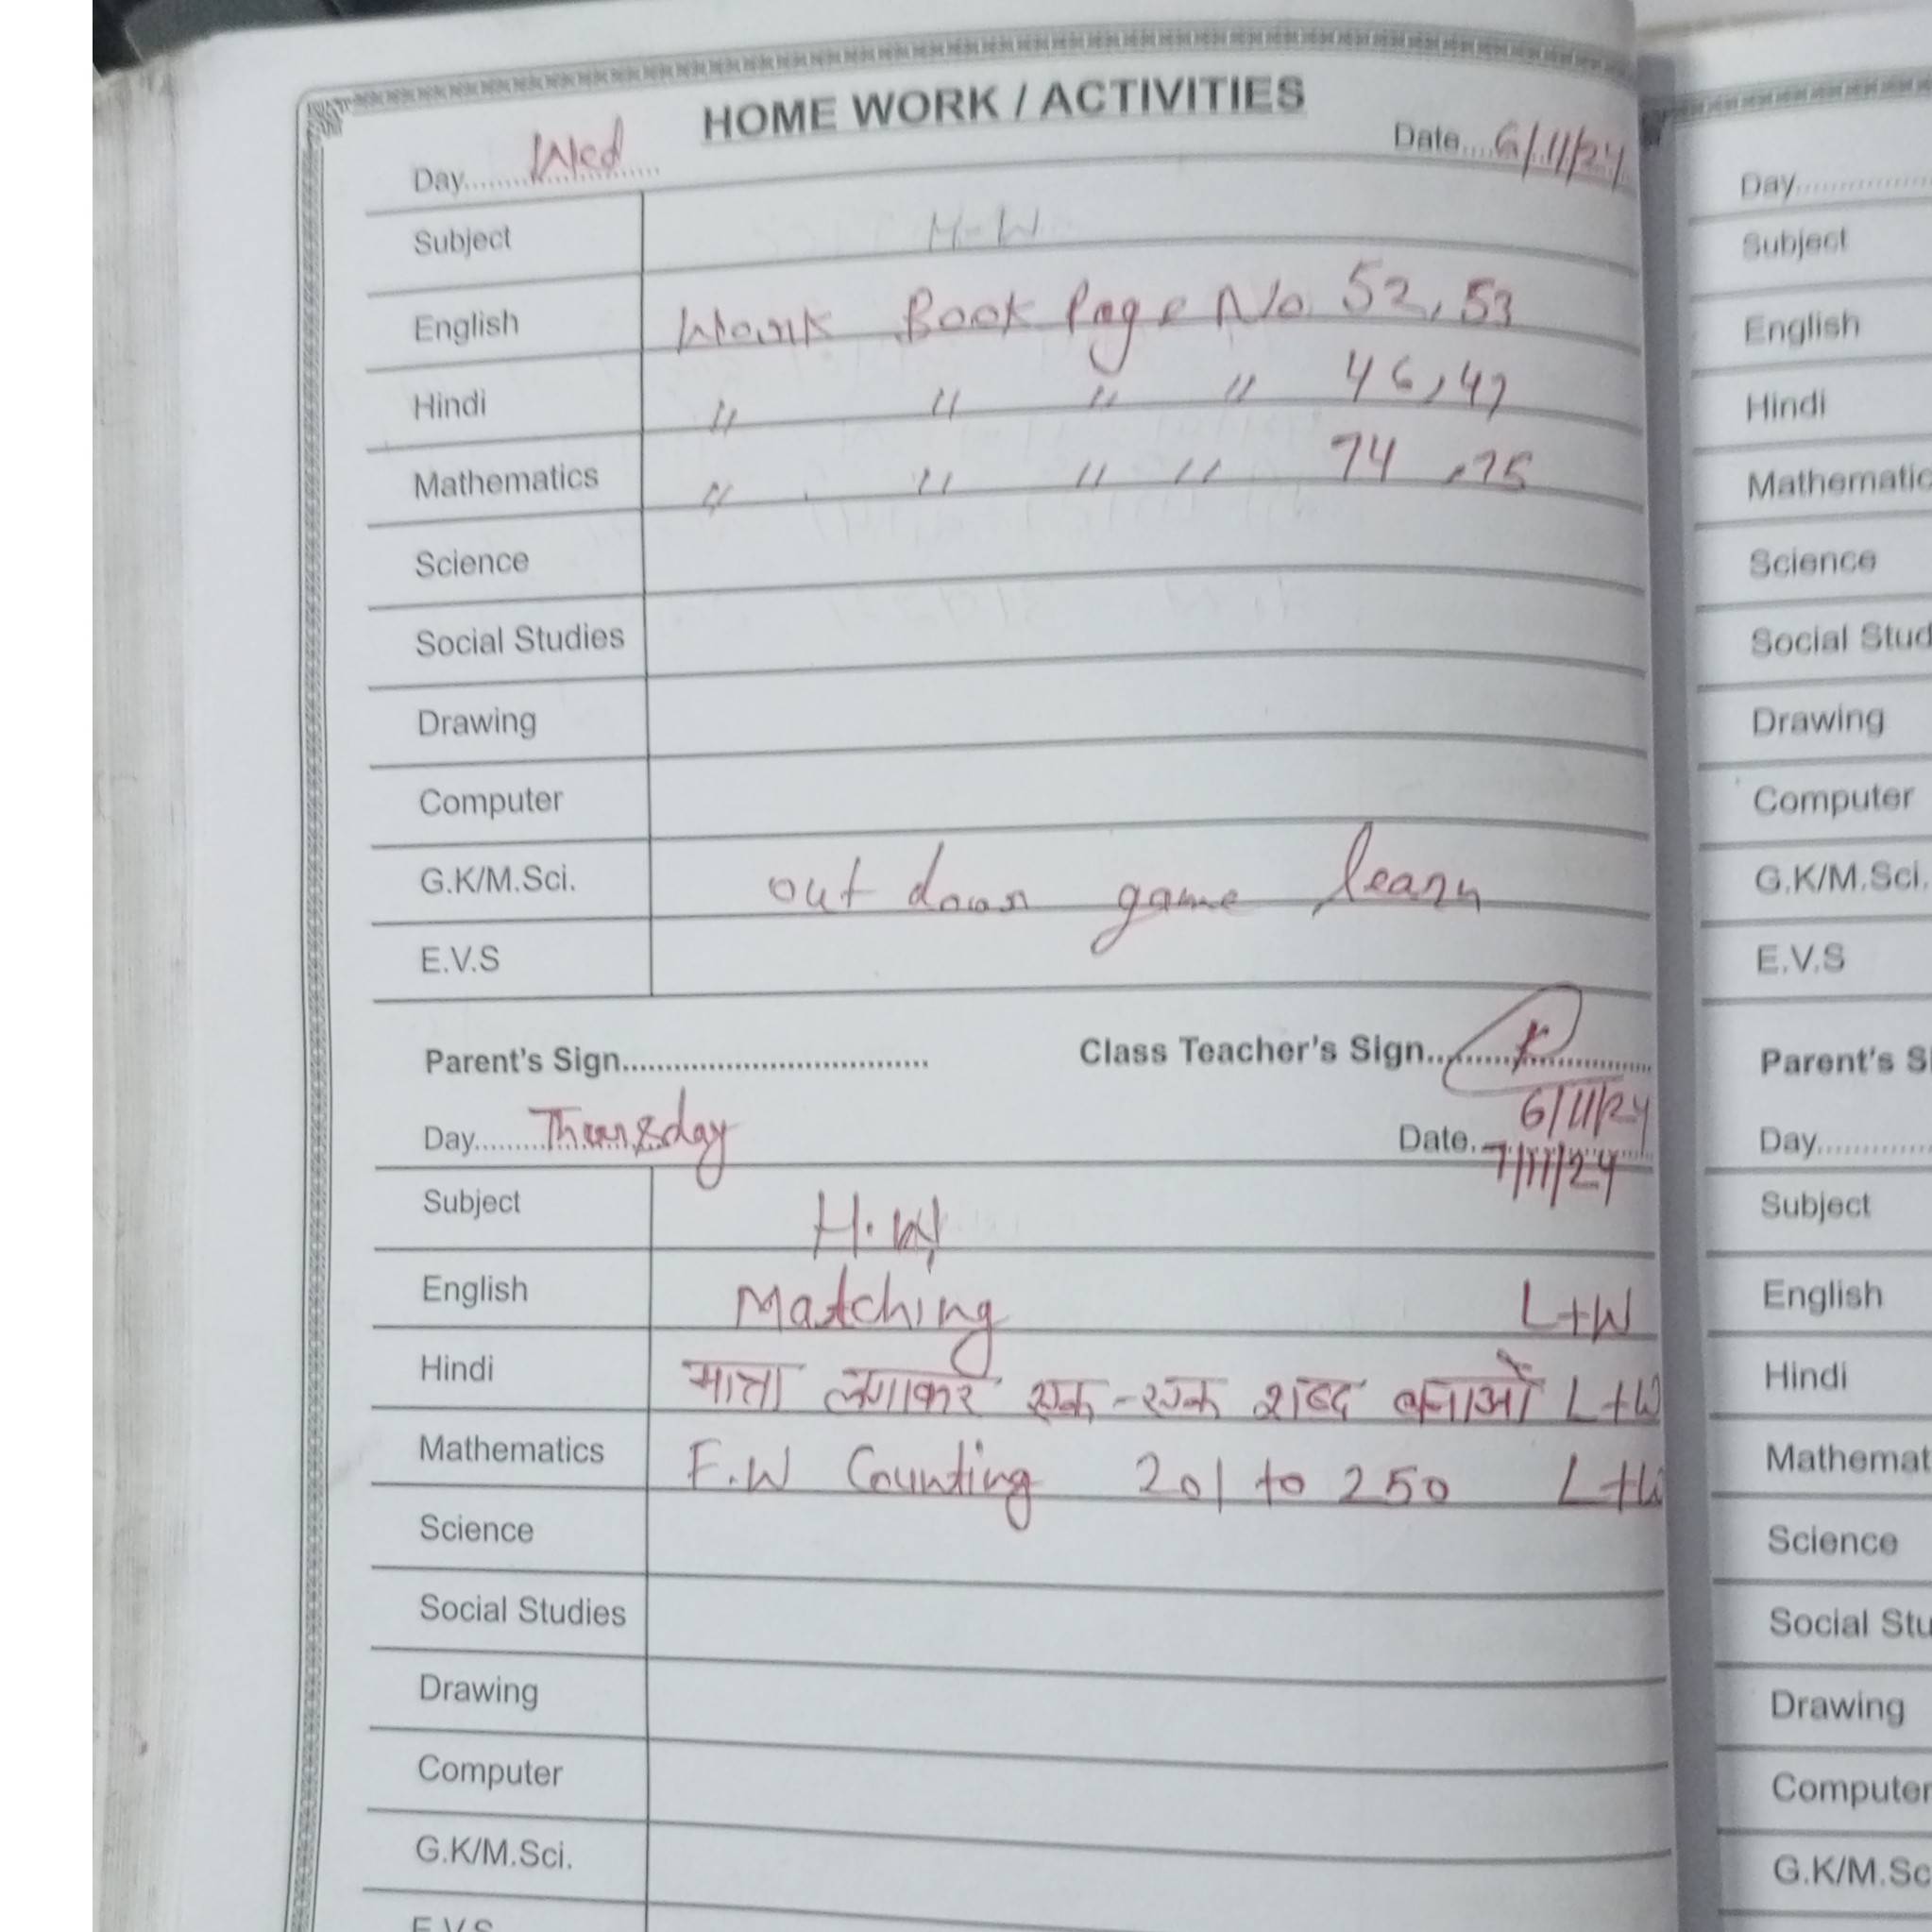 HOME WORK / ACTIVITIES
Day........Wed........ Date....6/11/24
Subject H-W
English Work Book Page No. 52, 53
Hindi " " " " 46, 47
Mathematics " " " " 74, 75
Science
Social Studies
Drawing
Computer
G.K/M.Sci. out down game learn
E.V.S
Parent's Sign.................................... Class Teacher's Sign............................
6/11/24
Day........Thursday Date.7/11/24
Subject H.W
English Matching L+W
Hindi मात्रा लगाकर एक-एक शब्द बनाओ L+W
Mathematics F.W Counting 201 to 250 L+W
Science
Social Studies
Drawing
Computer
G.K/M.Sci.
E.V.S
Day................
Subject
English
Hindi
Mathematic
Science
Social Stud
Drawing
Computer
G.K/M.Sci.
E.V.S
Parent's Si
Day................
Subject
English
Hindi
Mathemat
Science
Social Stu
Drawing
Computer
G.K/M.Sc